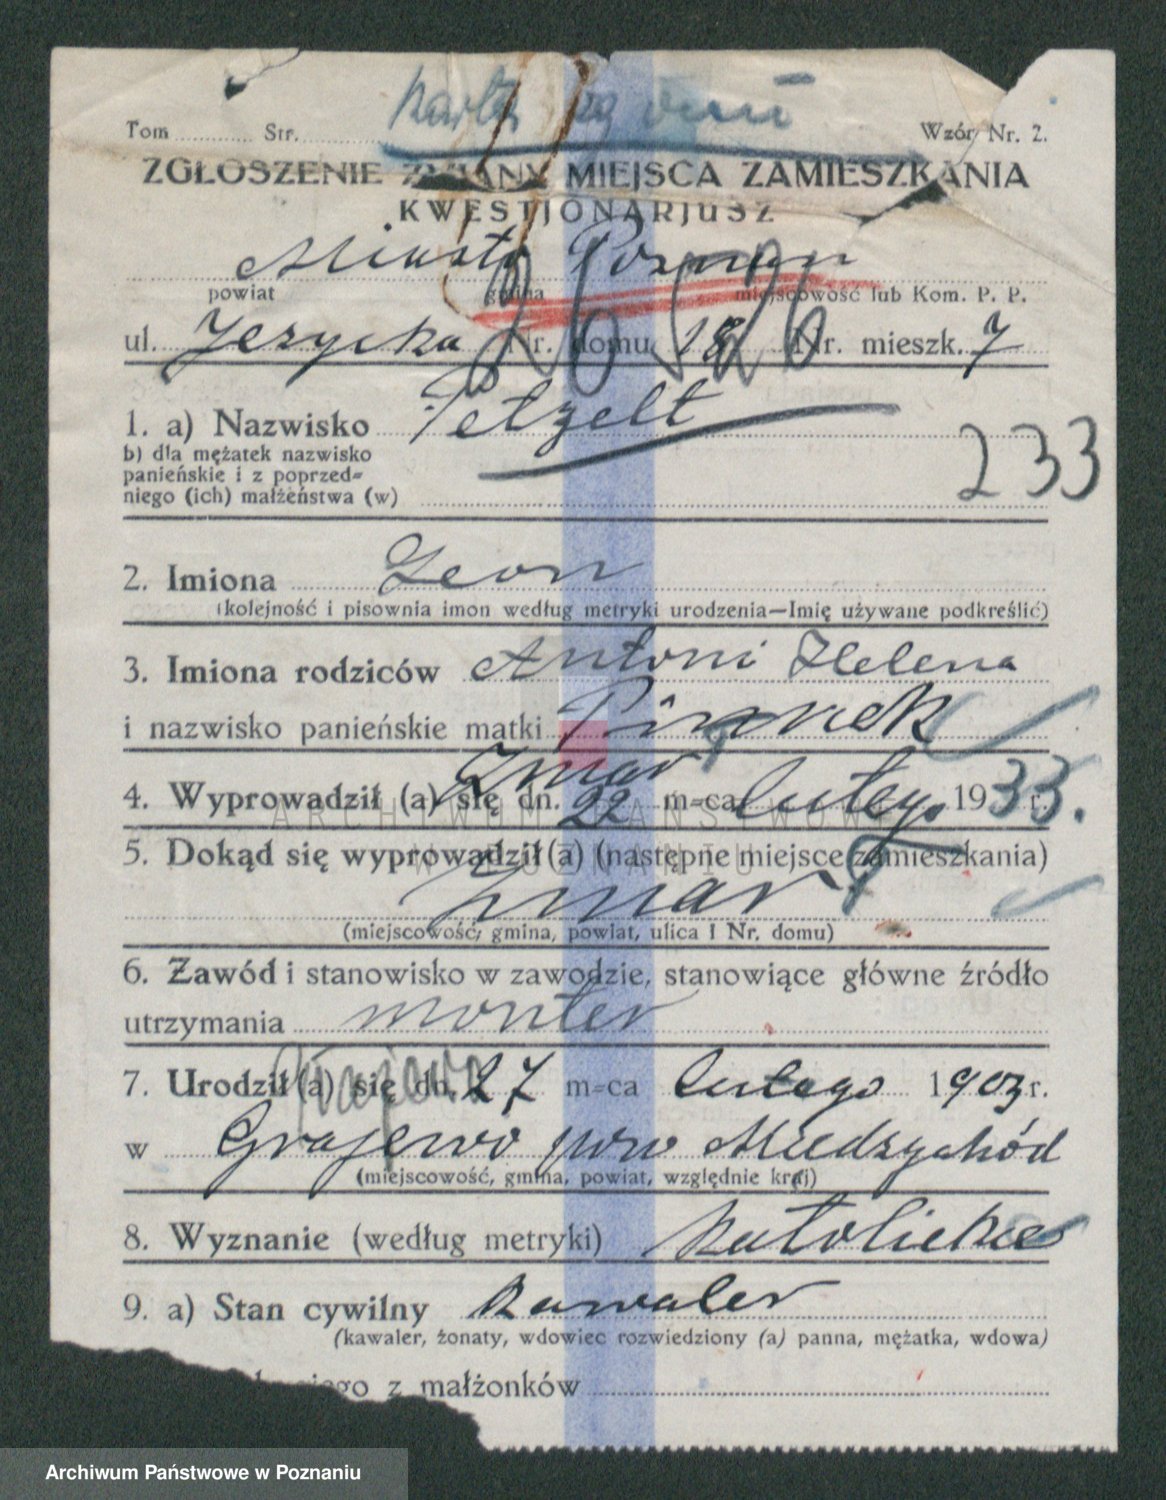 Karta zg
Tom Str. Wzór Nr. 2.
ZGŁOSZENIE ZMIANY MIEJSCA ZAMIESZKANIA
KWESTJONARJUSZ
Miasto Poznań
powiat gmina miejscowość lub Kom. P. P.
ul. Jezycka Nr. domu 18 Nr. mieszk. 7
1. a) Nazwisko Petzelt
b) dla mężatek nazwisko
panieńskie i z poprzed=
niego (ich) małżeństwa (w)
233
2. Imiona Leon
(kolejność i pisownia imon według metryki urodzenia—Imię używane podkreślić)
3. Imiona rodziców Antoni Helena
i nazwisko panieńskie matki
Zmarł
4. Wyprowadził (a) się dn. 22 m=ca lutego 1933 r.
5. Dokąd się wyprowadził (a) (następne miejsce zamieszkania)
Zmarł
(miejscowość, gmina, powiat, ulica i Nr. domu)
6. Zawód i stanowisko w zawodzie, stanowiące główne źródło
utrzymania monter
7. Urodził (a) się dn. 27 m=ca lutego 1903 r.
w Grajewo pow Miedzychód
(miejscowość, gmina, powiat, względnie kraj)
8. Wyznanie (według metryki) katolickie
9. a) Stan cywilny kawaler
(kawaler, żonaty, wdowiec rozwiedziony (a) panna, mężatka, wdowa)
z małżonków
ARCHIWUM PAŃSTWOWE
W POZNANIU
Archiwum Państwowe w Poznaniu